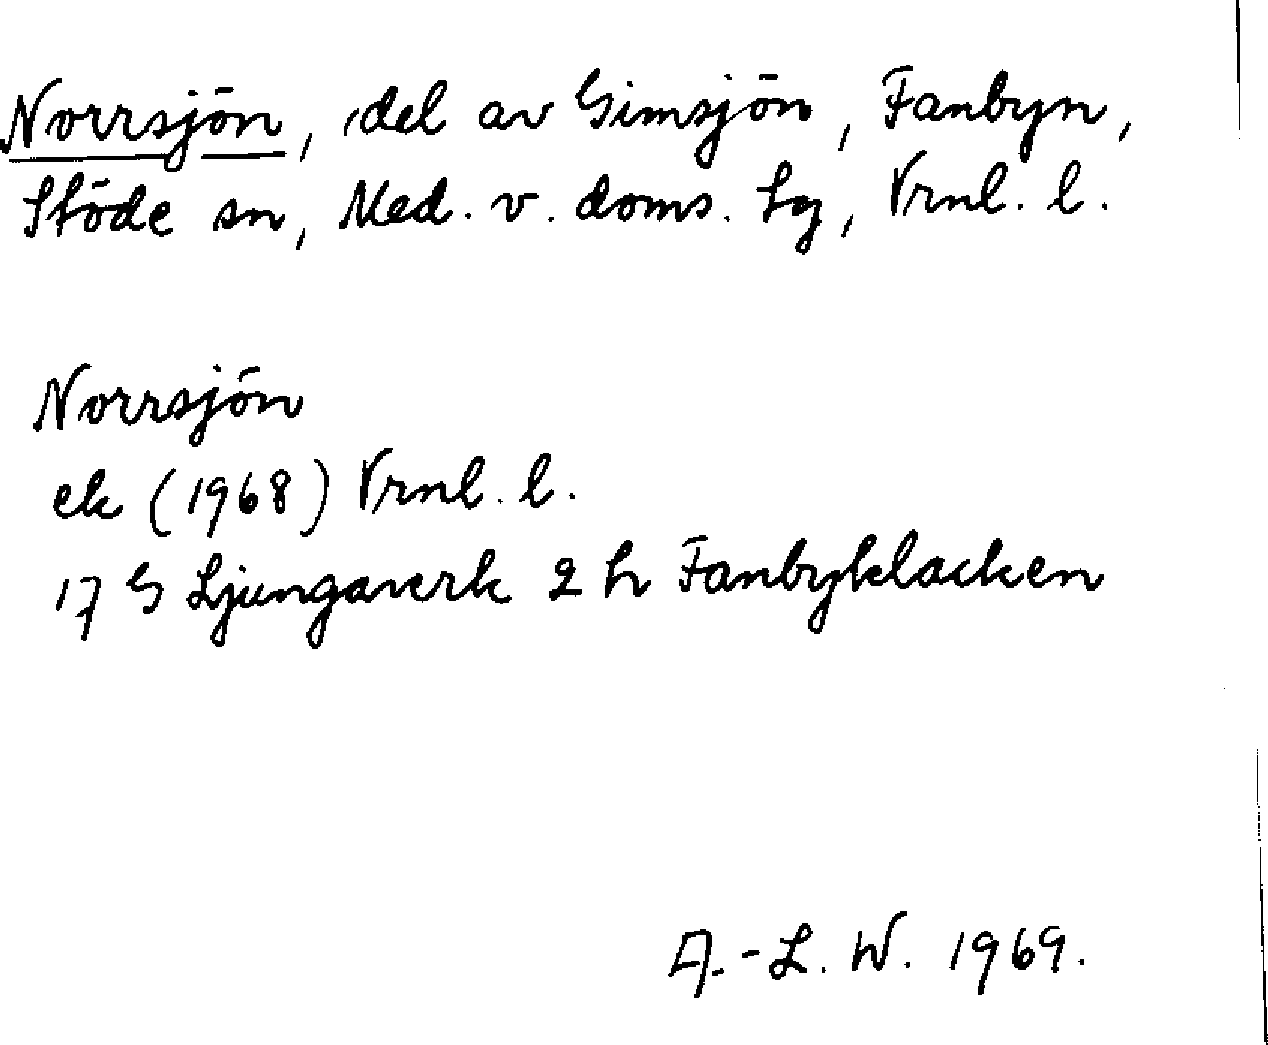 Norrsjön, del av Gimsjön, Fanbyn,
Stöde sn, Med. v. doms. tg, Vrnl. l.
Norrsjön
ek (1968) Vrnl. l.
17 G Ljungaverk 2 h Fanbyklacken
A.-L. W. 1969.